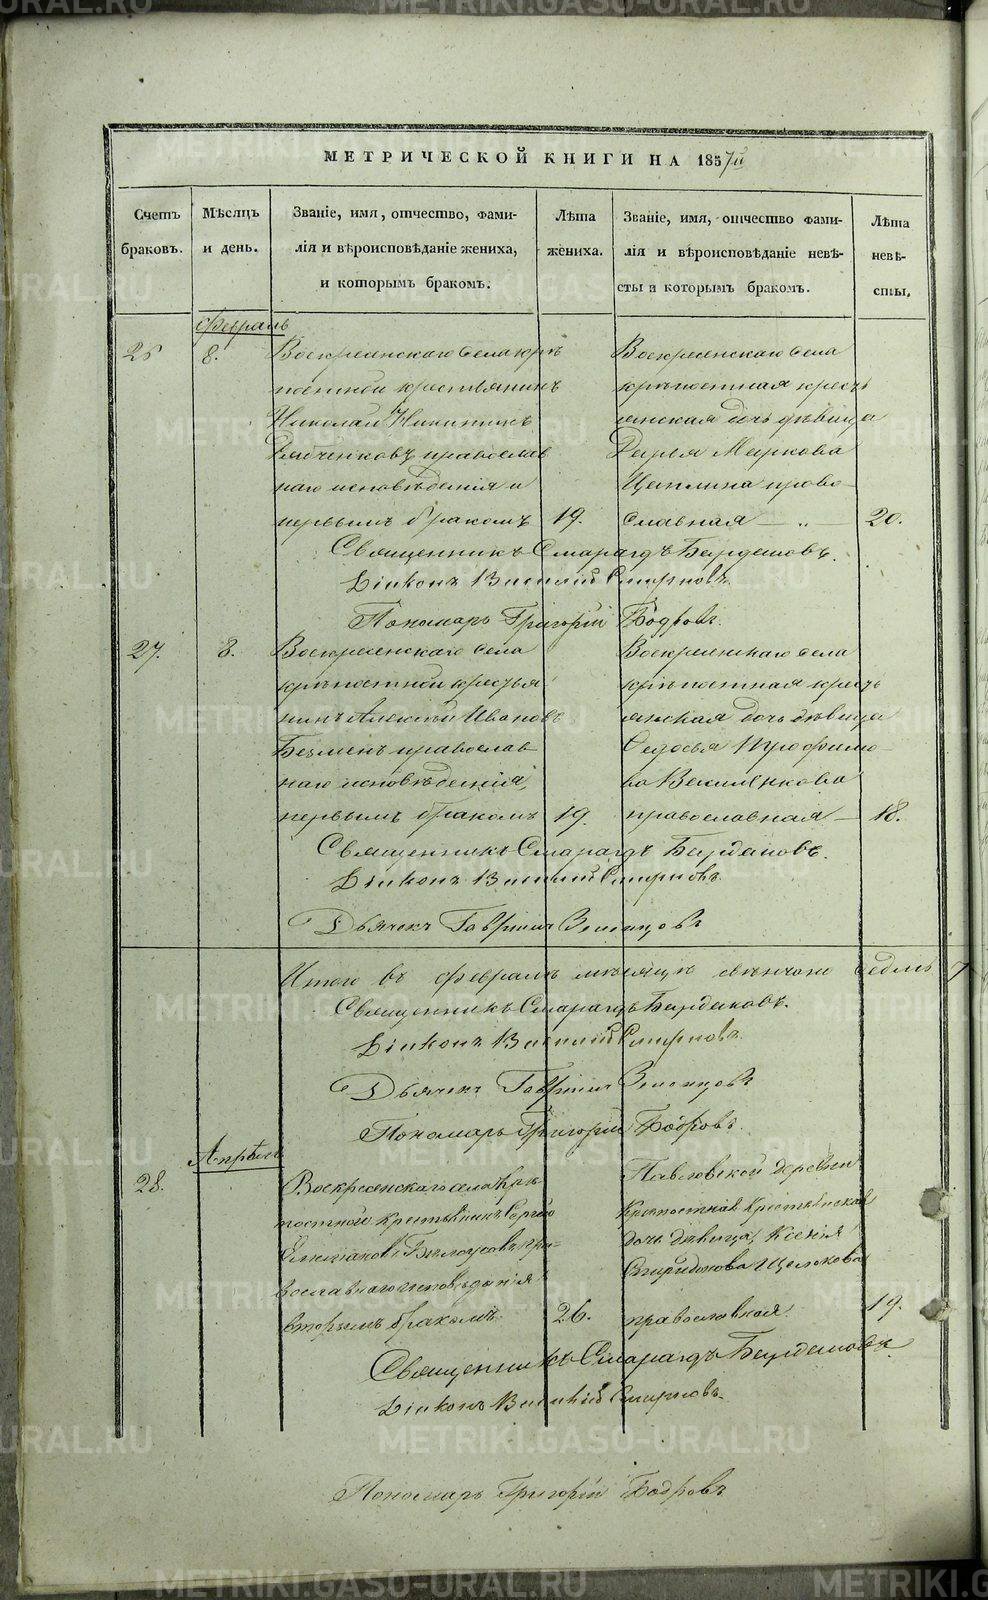 МЕТРИЧЕСКОЙ КНИГИ НА 1857й
Счетъ браковъ.
Мѣсяцъ и день.
Званіе, имя, отчество, фами-
лія и вѣроисповѣданіе жениха,
и которымъ бракомъ.
Лѣта жениха.
Званіе, имя, отчество фами-
лія и вѣроисповѣданіе невѣ-
сты и которымъ бракомъ.
Лѣта невѣ-
сты.
Февраль
26 8.
Воскресенскаго села крѣ
постной крестьянинъ
Николай Никитинъ
православ
наго исповѣденія и
первымъ бракомъ 19.
Воскресенскаго села
крѣпостная кресть
янская дочь дѣвица
Дарья Маркова
право
славная — „ — 20.
Священникъ Смарагдъ
Діаконъ Василій Смирновъ
Пономарь Григорій Бодровъ
27. 8.
Воскресенскаго села
крѣпостной крестья
нинъ Алексѣй Ивановъ
православ
наго исповѣденія,
первымъ бракомъ 19.
Воскресенскаго села
крѣпостная кресть
янская дочь дѣвица
Федосья Трофимо
ва
православная — 18.
Священникъ Смарагдъ
Діаконъ Василій Смирновъ
Дьячекъ Гавріилъ
Итого въ Февралѣ мѣсяцѣ вѣнчано седмь 7
Священникъ Смарагдъ
Діаконъ Василій Смирновъ
Дьячекъ Гавріилъ
Пономарь Григорій Бодровъ
Апрѣль
28.
Воскресенскаго села крѣ
постной крестьянинъ Сергій
Бѣлоусовъ пра-
вославнаго исповѣданія
вторымъ бракомъ 26.
Павловской деревни
крѣпостная крестьянская
дочь дѣвица Ксенія
Спиридонова
православная 19.
Священникъ Смарагдъ
Діаконъ Василій Смирновъ
Пономарь Григорій Бодровъ
METRIKI.GASO-URAL.RU